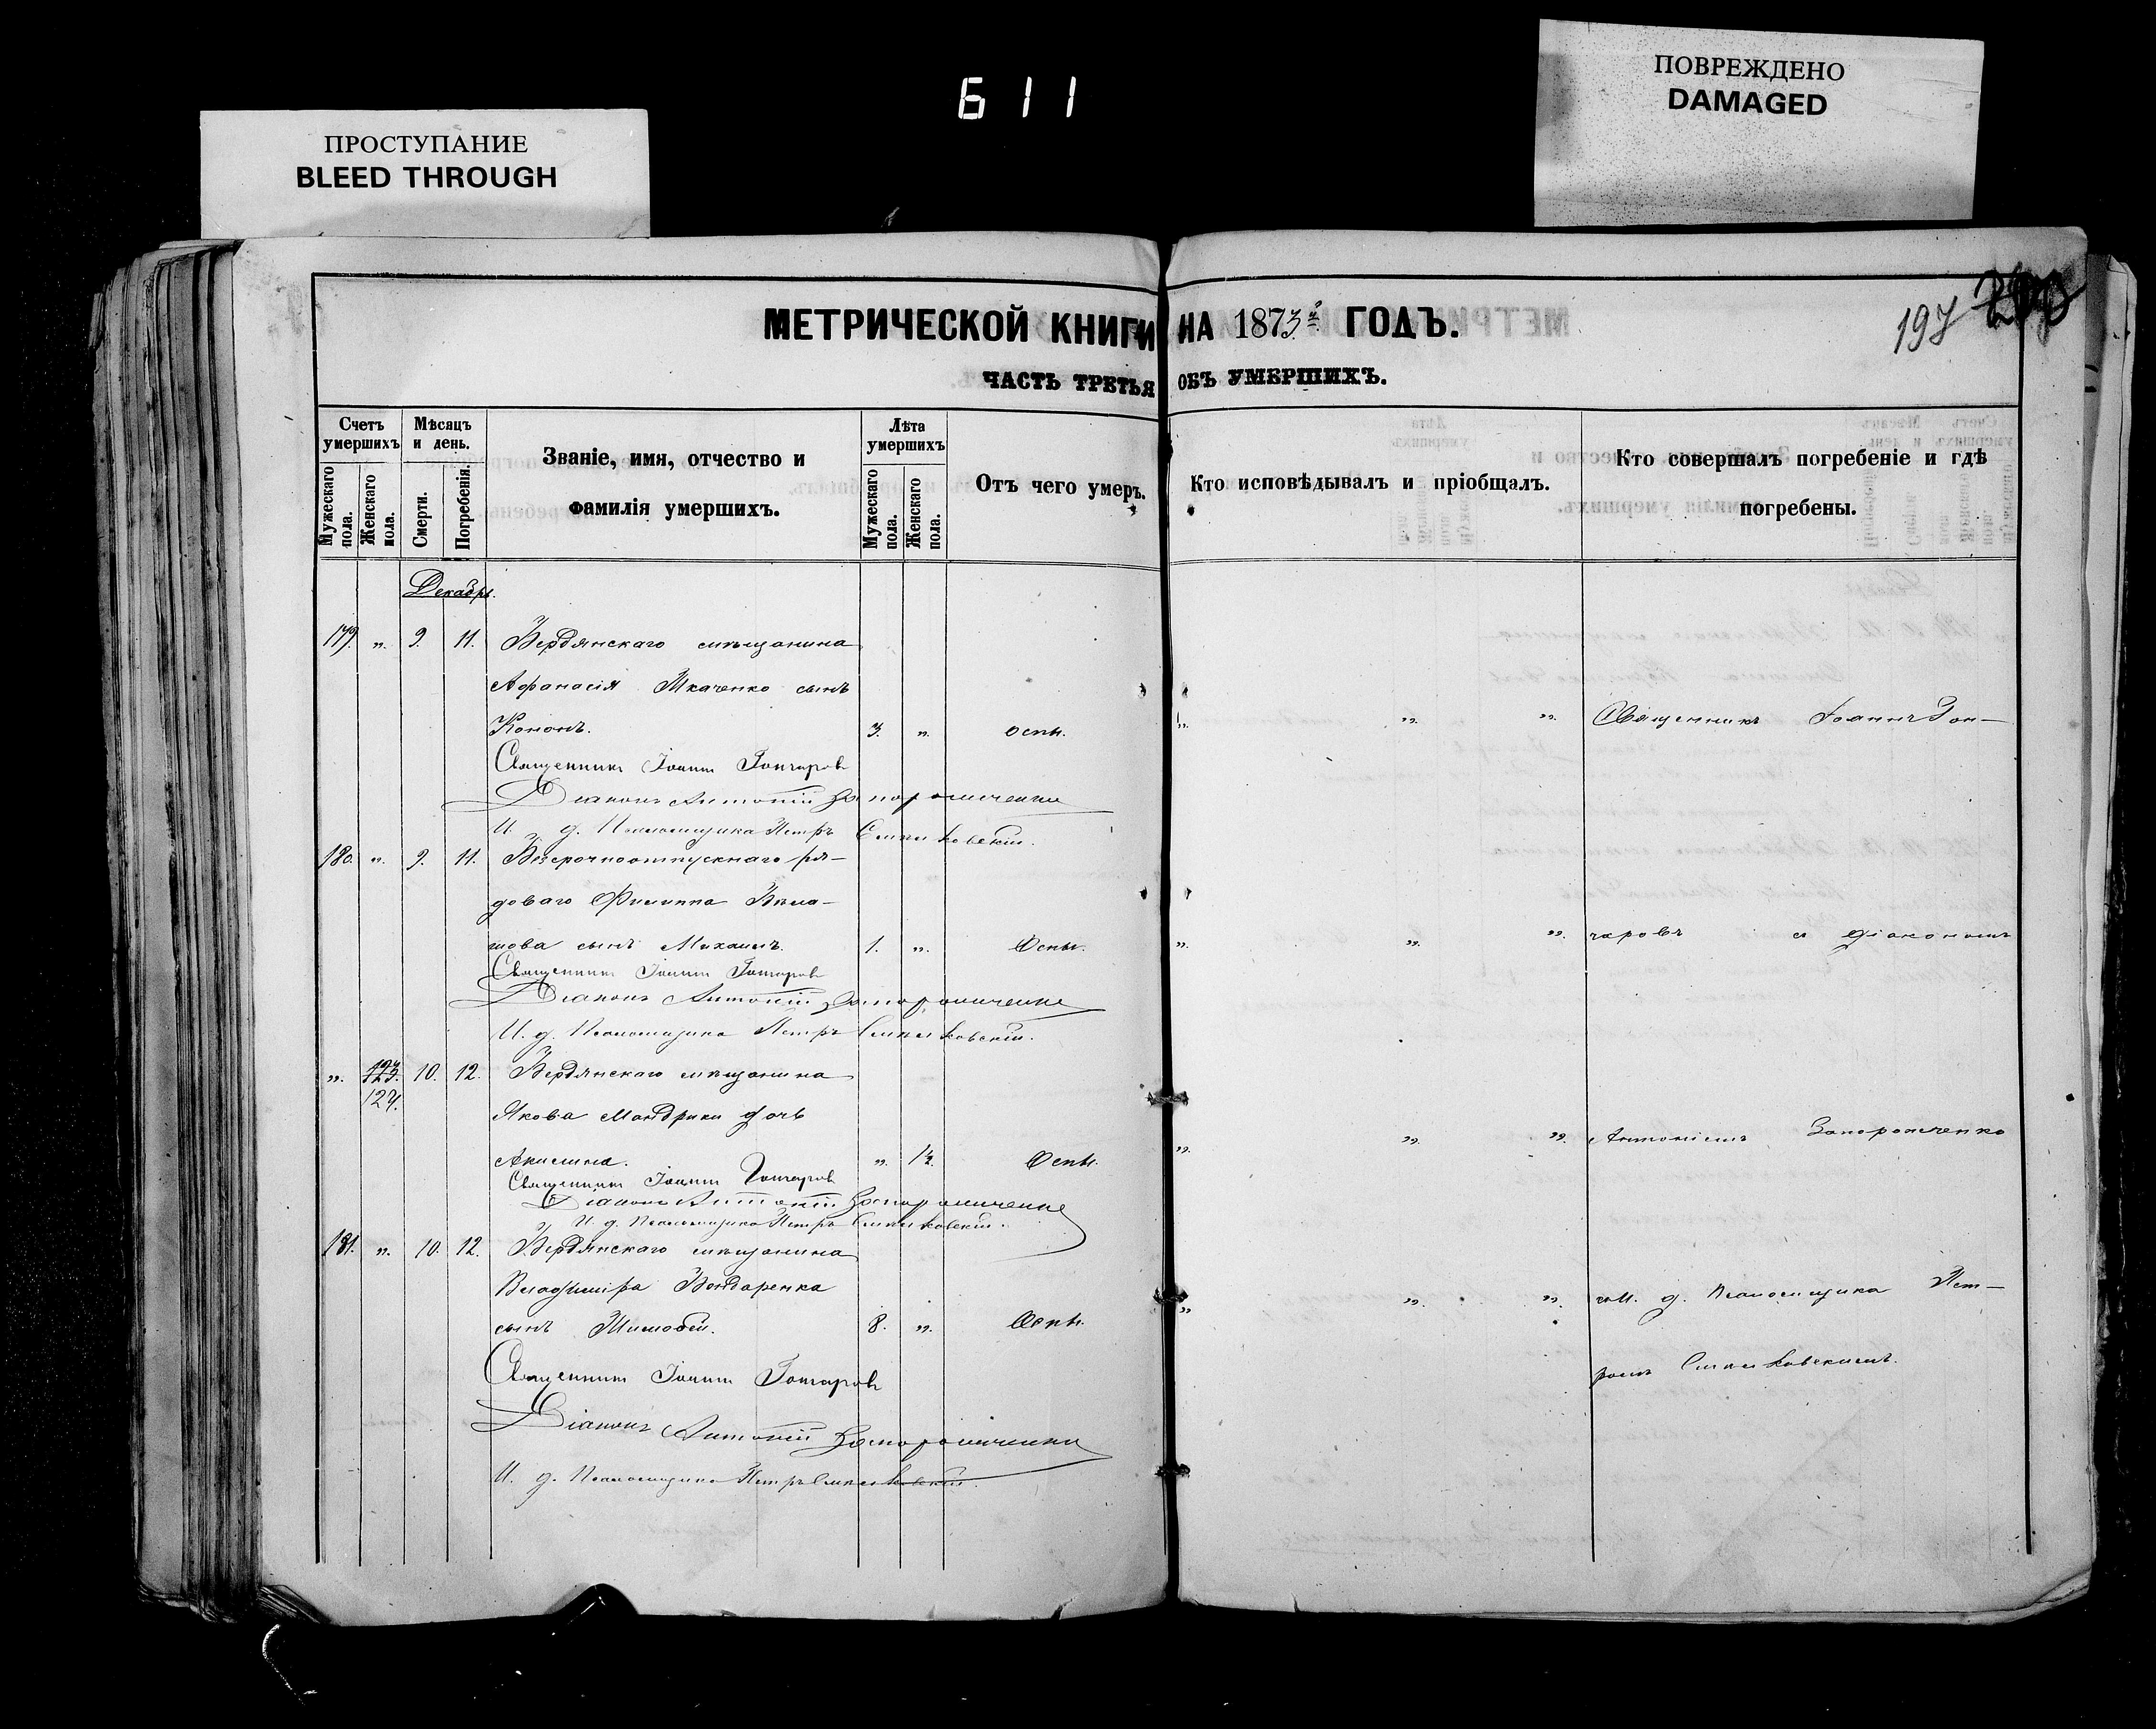 611
ПРОСТУПАНИЕ
BLEED THROUGH
ПОВРЕЖДЕНО
DAMAGED
МЕТРИЧЕСКОЙ КНИГИ НА 1873й ГОДЪ.
197
ЧАСТЬ ТРЕТЬЯ ОБЪ УМЕРШИХЪ.
Счетъ умершихъ
Мужескаго пола.
Женскаго пола.
Мѣсяцъ и день.
Смерти.
Погребенія.
Званіе, имя, отчество и
фамилія умершихъ.
Лѣта умершихъ
Мужескаго пола.
Женскаго пола.
Отъ чего умеръ.
Кто исповѣдывалъ и пріобщалъ.
Кто совершалъ погребеніе и гдѣ
погребены.
Декабрь.
179. „ 9. 11. Бердянскаго мѣщанина
Афанасія Ткаченко сынъ
Кононъ. 3. „ оспы. „ „ „ Священникъ Іоаннъ Гон-
Священникъ Іоаннъ Гончаровъ
Діаконъ Антоній Запорожченко
И. д. Псаломщика Петръ
180. „ 9. 11. Безсрочноотпускнаго ря-
доваго Филиппа
сынъ Михаилъ. 1. „ Оспы. „ „ „ чаровъ с діакономъ
Священникъ Іоаннъ Гончаровъ
Діаконъ Антоній Запорожченко
И. д. Псаломщика Петръ
„ 123. 10. 12. Бердянскаго мѣщанина
124.
Якова Мандрики дочь
Акилина. „ 1½. Оспы. „ „ „ Антоніемъ Запорожченко
Священникъ Іоаннъ Гончаровъ
Діаконъ Антоній Запорожченко
И. д. Псаломщика Петръ
181. „ 10. 12. Бердянскаго мѣщанина
Владиміра Бондаренка
сынъ Тимофей. 8. „ Оспы. „ „ „ и И. д. Псаломщика Пет-
Священникъ Іоаннъ Гончаровъ
ромъ
Діаконъ Антоній Запорожченко
И. д. Псаломщика Петръ